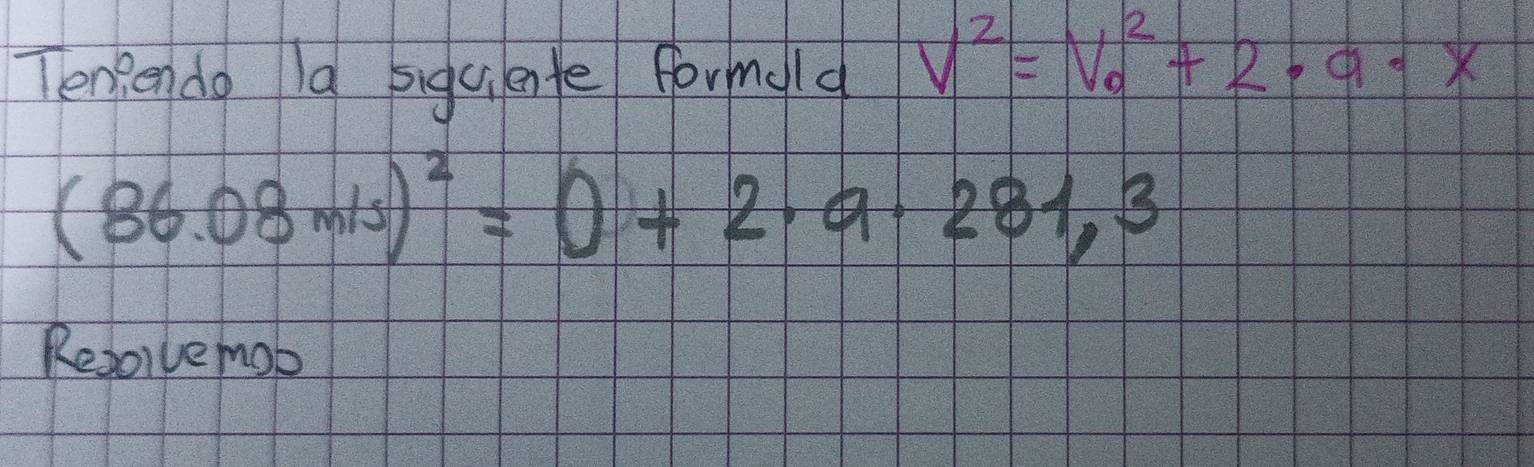 Teniendo la siguiente formula V² = V₀² + 2 • a • x
(86.08 m/s)² = 0 + 2 • a • 281,3
Resolvemos